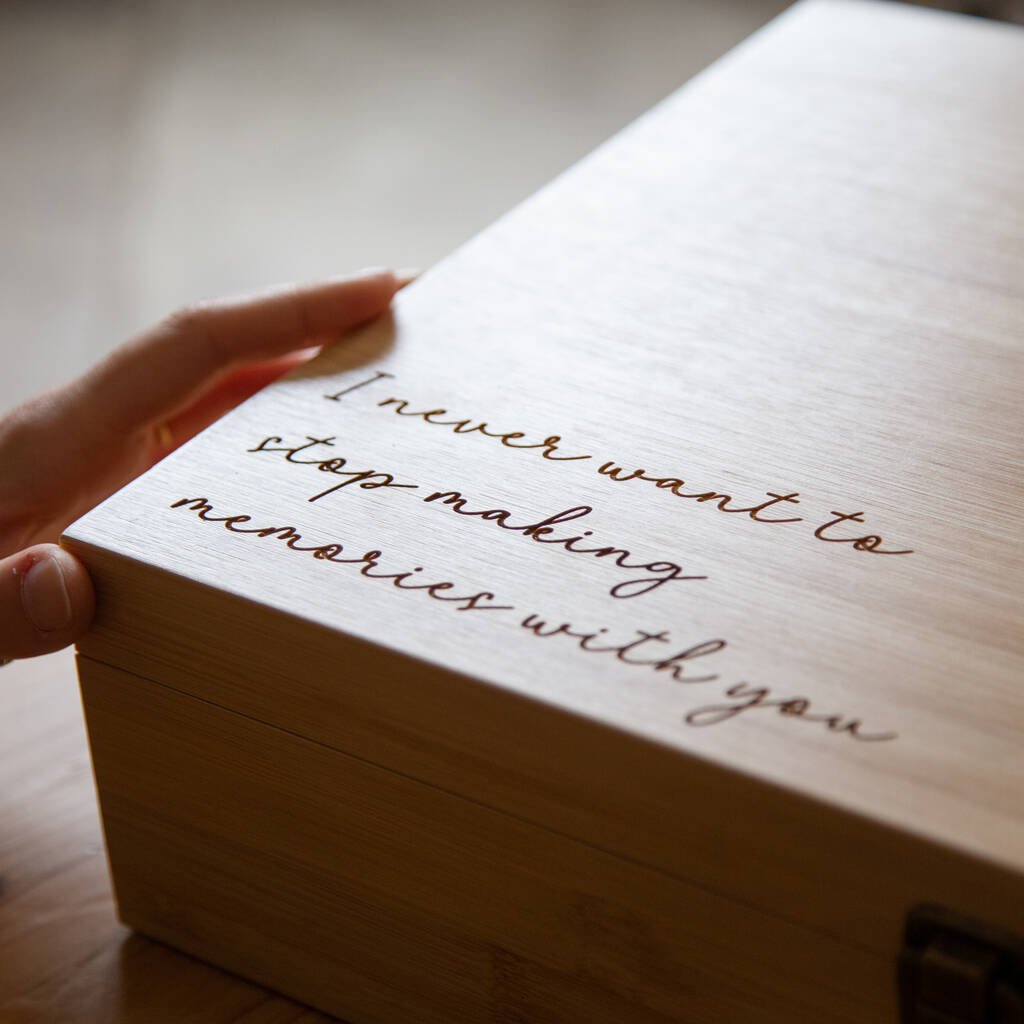 I never want to
stop making
memories with you